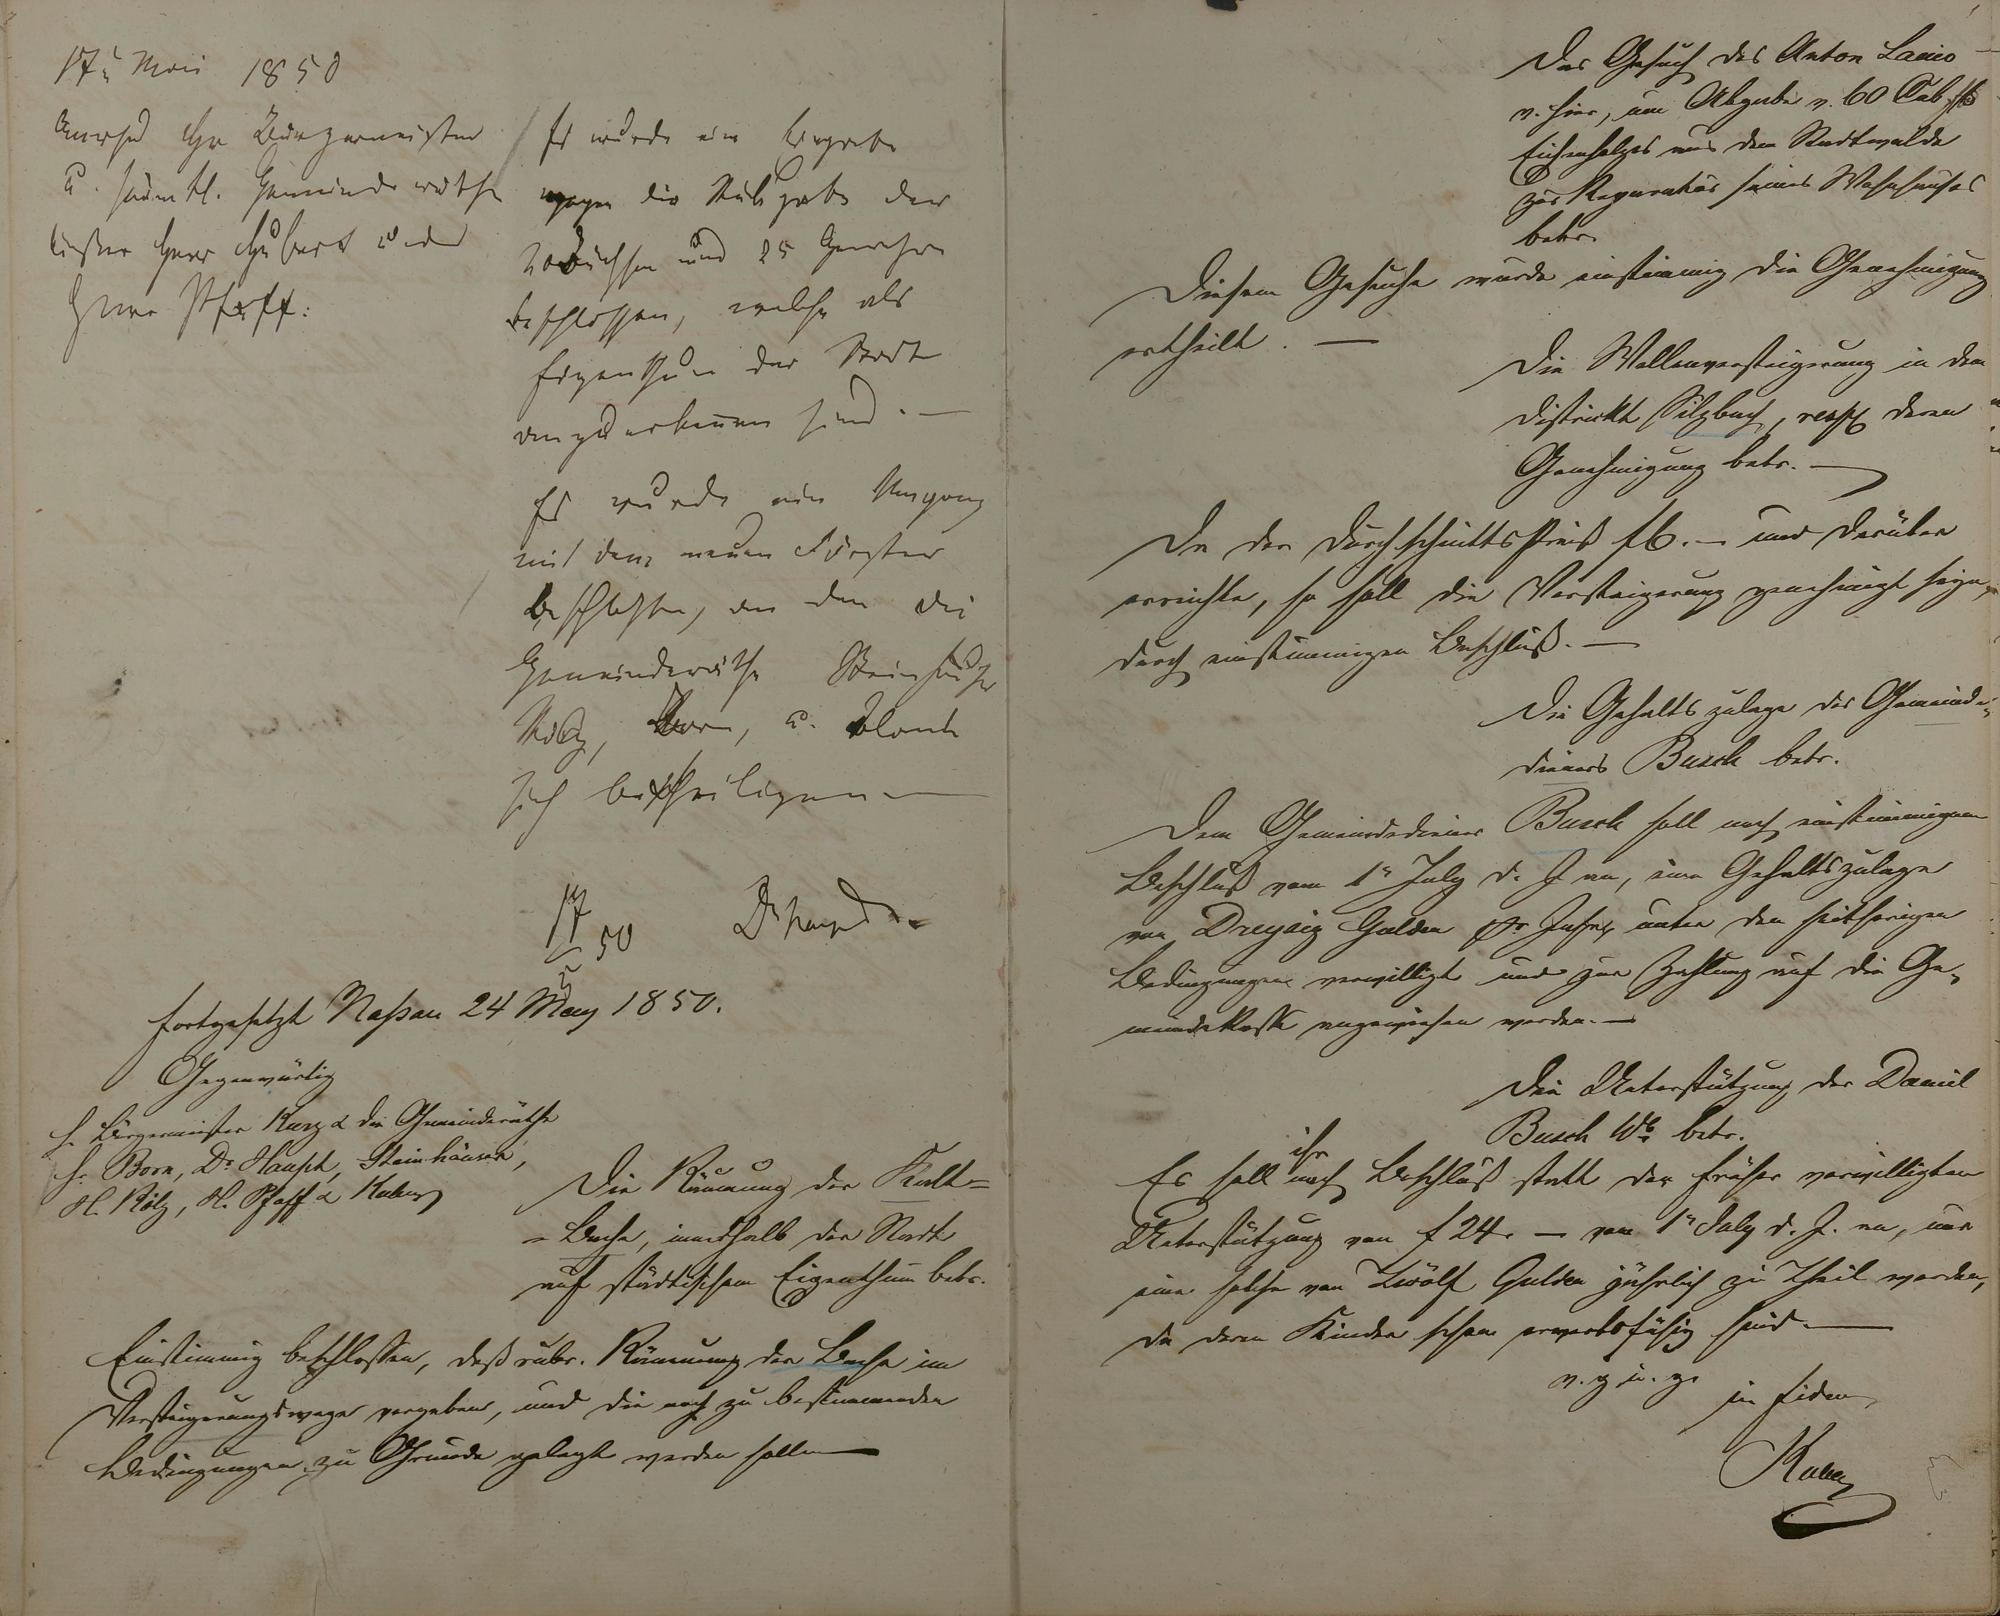 17 Mai 1850
Anwesd Hr Bürgermeister
u. sämtl. Gemeinderäthe
außer Herr Hubert und
Herr Pfaff:
Es wurde eine Eingabe
wegen die Rückgabe der
Büchsen und 25 Gewehre
beschlossen, welche als
Eigenthum der Stadt
anzuerkennen sind. —
Es wurde ein Umgang
mit dem neuen Förster
beschlossen, an dem die
Gemeinderäthe Steinhäuser
Rölz, Born, u.
sich betheiligen —
17/5 50
fortgesetzt Nassau 24 May 1850.
Gegenwärtig
H. Bürgermeister Kurz & die Gemeinderäthe
H. Born, Dr Haupt, Steinhäuser,
H. Rölz, H. Pfaff &
Die Räumung der Kalt-
-Bache, innerhalb der Stadt
auf städtischem Eigenthum betr.
Einstimmig beschlossen, daß rubr. Räumung der Bache im
Versteigerungswege vergeben, und die noch zu bestimmenden
Bedingungen zu Grunde gelegt werden sollen —
Das Gesuch des Anton
v. hier, um Abgabe v. 60 Cub.
Eichenholzes aus dem Stadtwalde
zur Reparatur seines Wohnhauses
betr.
Diesem Gesuche wurde einstimmig die Genehmigung
ertheilt. —
Die Wellenversteigerung in dem
Distrikte Silzbach, resp deren
Genehmigung betr. —
Da der Durchschnittspreis f6. — und darüber
erreichte, so soll die Versteigerung genehmigt seyn,
durch einstimmigen Beschluß. —
Die Gehaltszulage des Gemeinde-
dieners Busch betr.
Dem Gemeindediener Busch soll nach einstimmigem
Beschluß vom 1n July d. J. an, eine Gehaltszulage
von Dreysig Gulden pr Jahr, unter den seitherigen
Bedingungen verwilligt und zur Zahlung auf die Ge-
meindekasse angewiesen werden. —
Die Unterstützung der Daniel
Busch Wb betr.
Es soll ihr nach Beschluß statt der früher verwilligten
Unterstützung von f 24. — vom 1n July d. J. an, nur
eine solche von Zwölf Gulden jährlich zu Theil werden,
da deren Kinder schon erwerbsfähig sind. —
v. g. u. g.
in fidem,